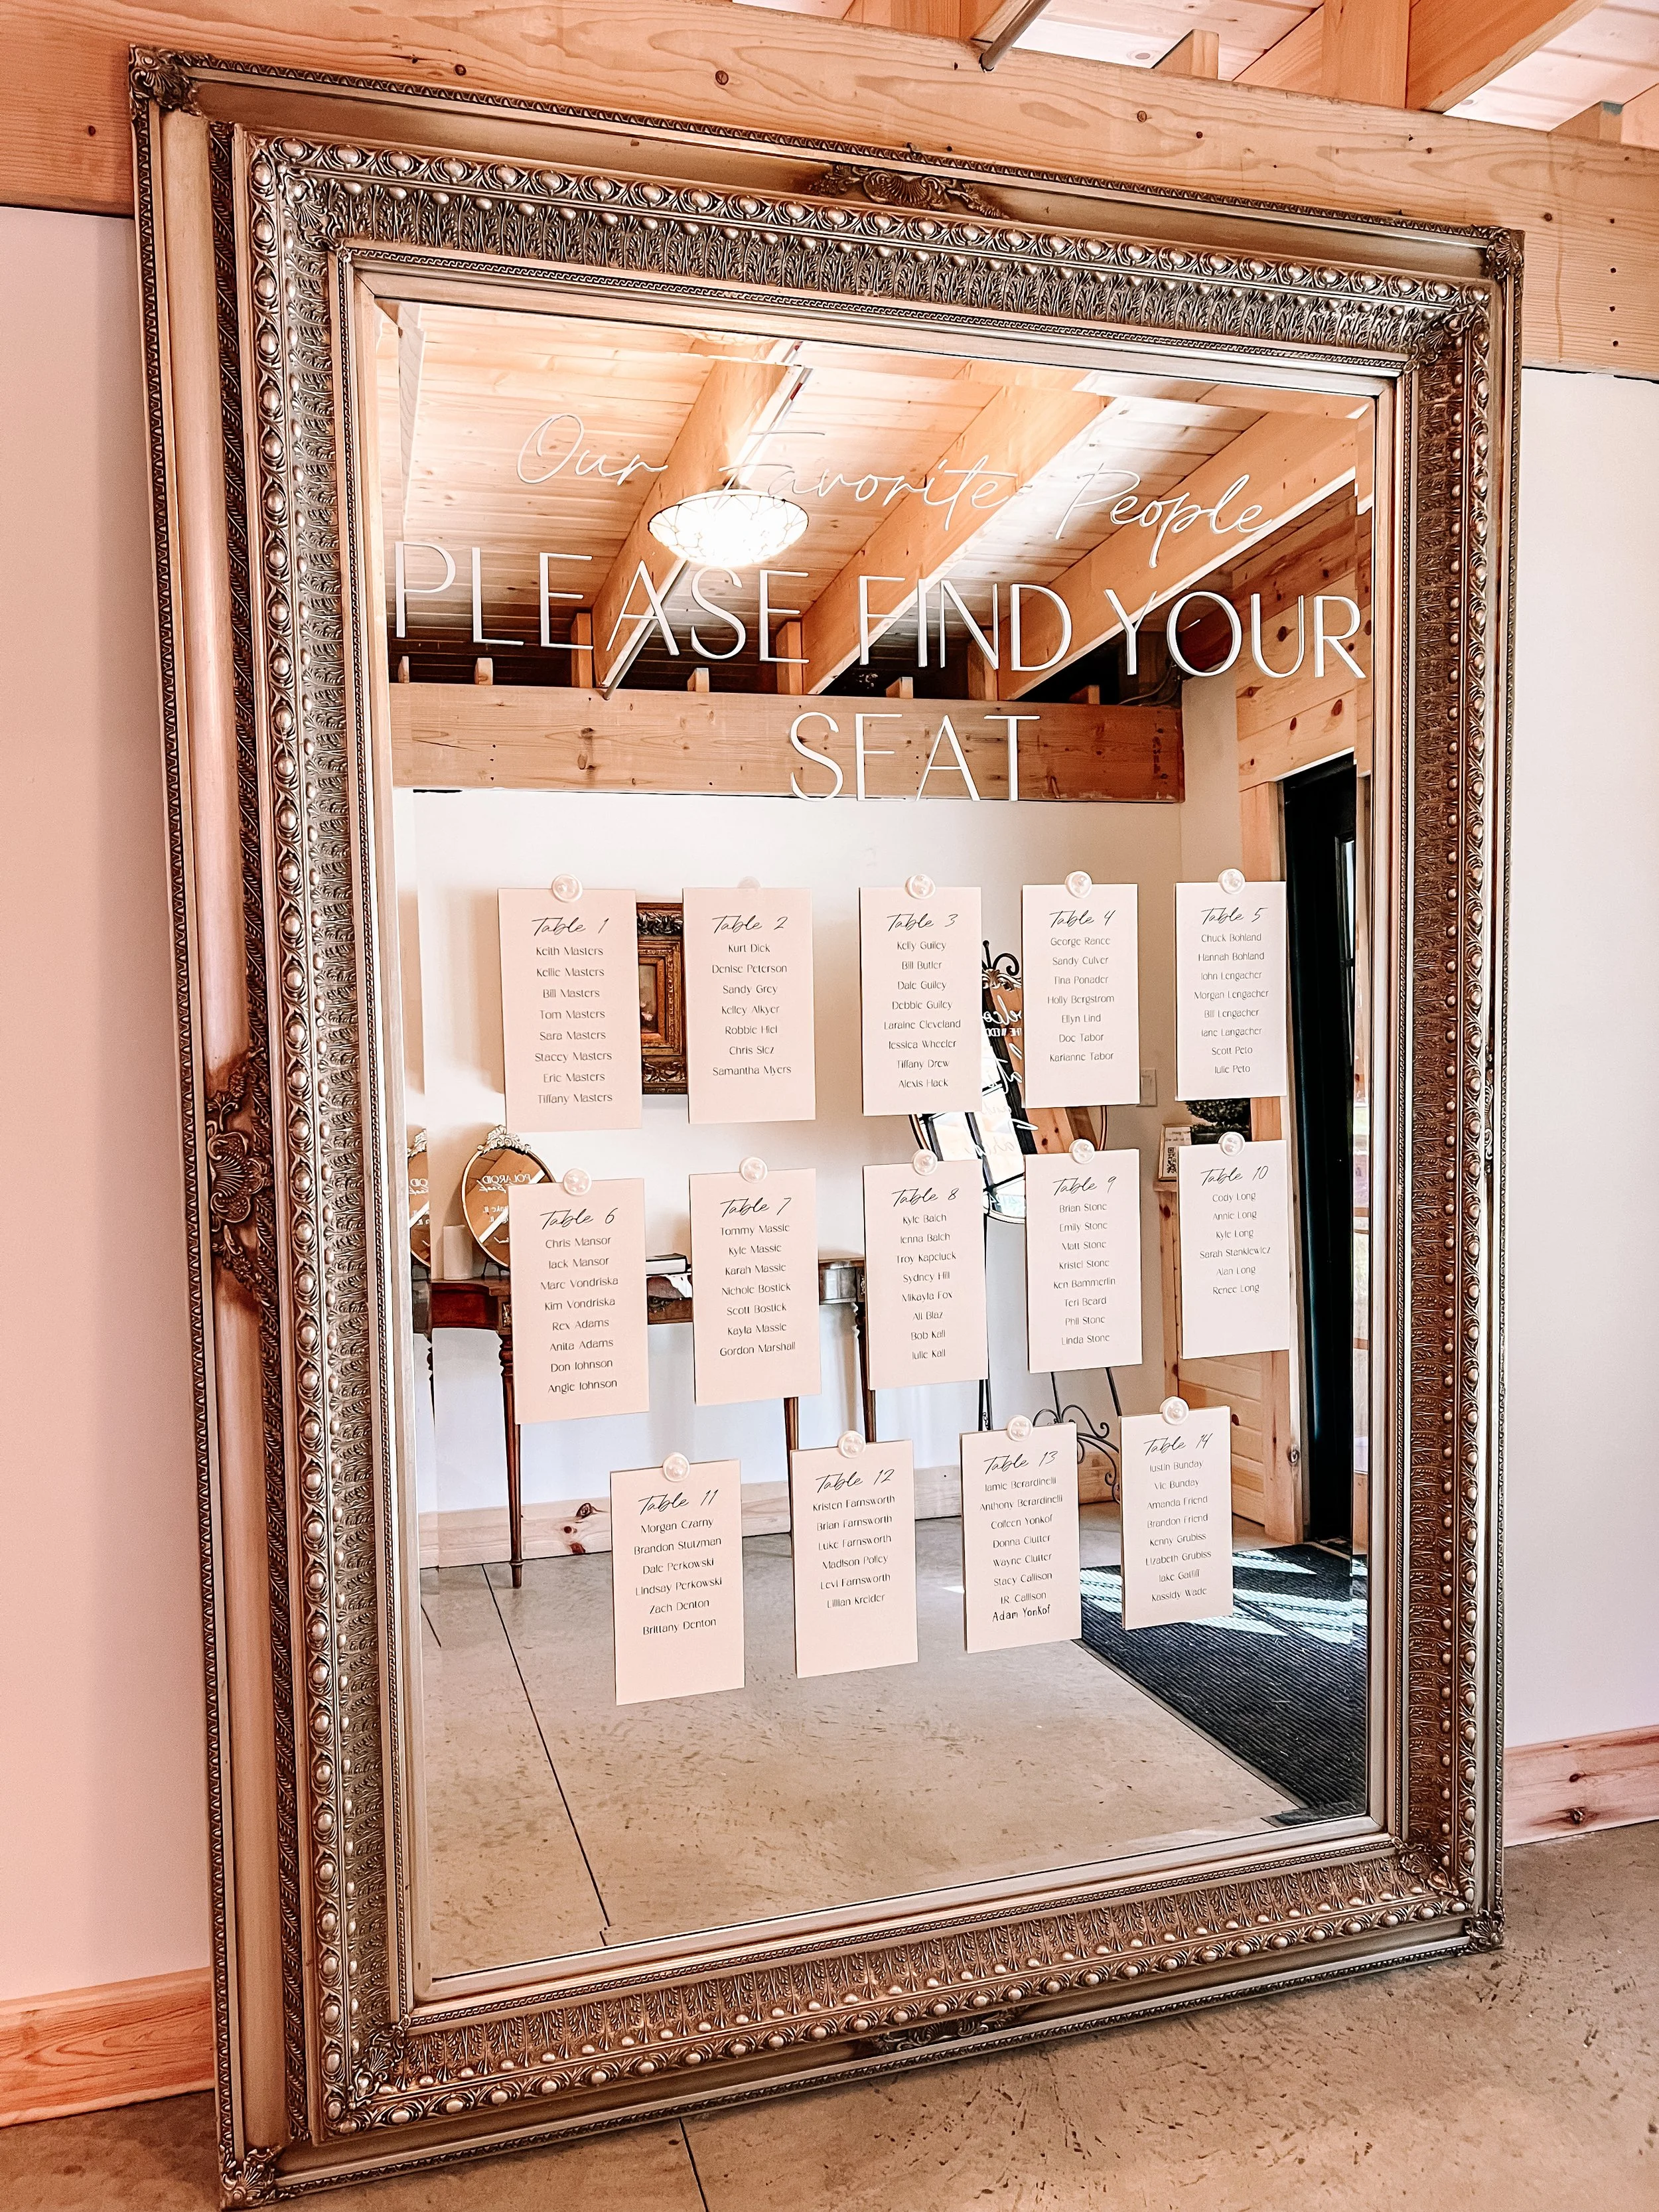 Our Favorite People
PLEASE FIND YOUR
SEAT
Table 1
Keith Masters
Kellie Masters
Bill Masters
Tom Masters
Sara Masters
Stacey Masters
Eric Masters
Tiffany Masters
Table 2
Kurt Dick
Denise Peterson
Sandy Grey
Kelley Alkyer
Robbie Hiel
Chris Slez
Samantha Myers
Table 3
Kelly Guiley
Bill Butler
Dale Guiley
Debbie Guiley
Laraine Cleveland
Jessica Wheeler
Tiffany Drew
Alexis Hack
Table 4
George Rance
Sandy Culver
Tina Ponader
Holly Bergstrom
Ellyn Lind
Doc Tabor
Karianne Tabor
Table 5
Chuck Bohland
Hannah Bohland
John Lengacher
Morgan Lengacher
Bill Lengacher
Jane Langacher
Scott Peto
Julie Peto
Table 6
Chris Mansor
Jack Mansor
Marc Vondriska
Kim Vondriska
Rex Adams
Anita Adams
Don Johnson
Angie Johnson
Table 7
Tommy Massie
Kyle Massie
Karah Massie
Nichole Bostick
Scott Bostick
Kayla Massie
Gordon Marshall
Table 8
Kyle Balch
Jenna Balch
Troy Kapcluck
Sydney Hill
Mikayla Fox
Ali Blaz
Bob Kall
Julie Kall
Table 9
Brian Stone
Emily Stone
Matt Stone
Kristel Stone
Ken Bammerlin
Teri Beard
Phil Stone
Linda Stone
Table 10
Cody Long
Annie Long
Kyle Long
Sarah Stankiewicz
Alan Long
Renee Long
Table 11
Morgan Czarny
Brandon Stutzman
Dale Perkowski
Lindsay Perkowski
Zach Denton
Brittany Denton
Table 12
Kristen Farnsworth
Brian Farnsworth
Luke Farnsworth
Madison Polley
Levi Farnsworth
Lillian Kreider
Table 13
Jamie Berardinelli
Anthony Berardinelli
Colleen Yonkof
Donna Clutter
Wayne Clutter
Stacy Callison
J.R. Callison
Adam Yonkof
Table 14
Justin Bunday
Vic Bunday
Amanda Friend
Brandon Friend
Kenny Grubiss
Lizabeth Grubiss
Jake Gatlill
Kassidy Wade